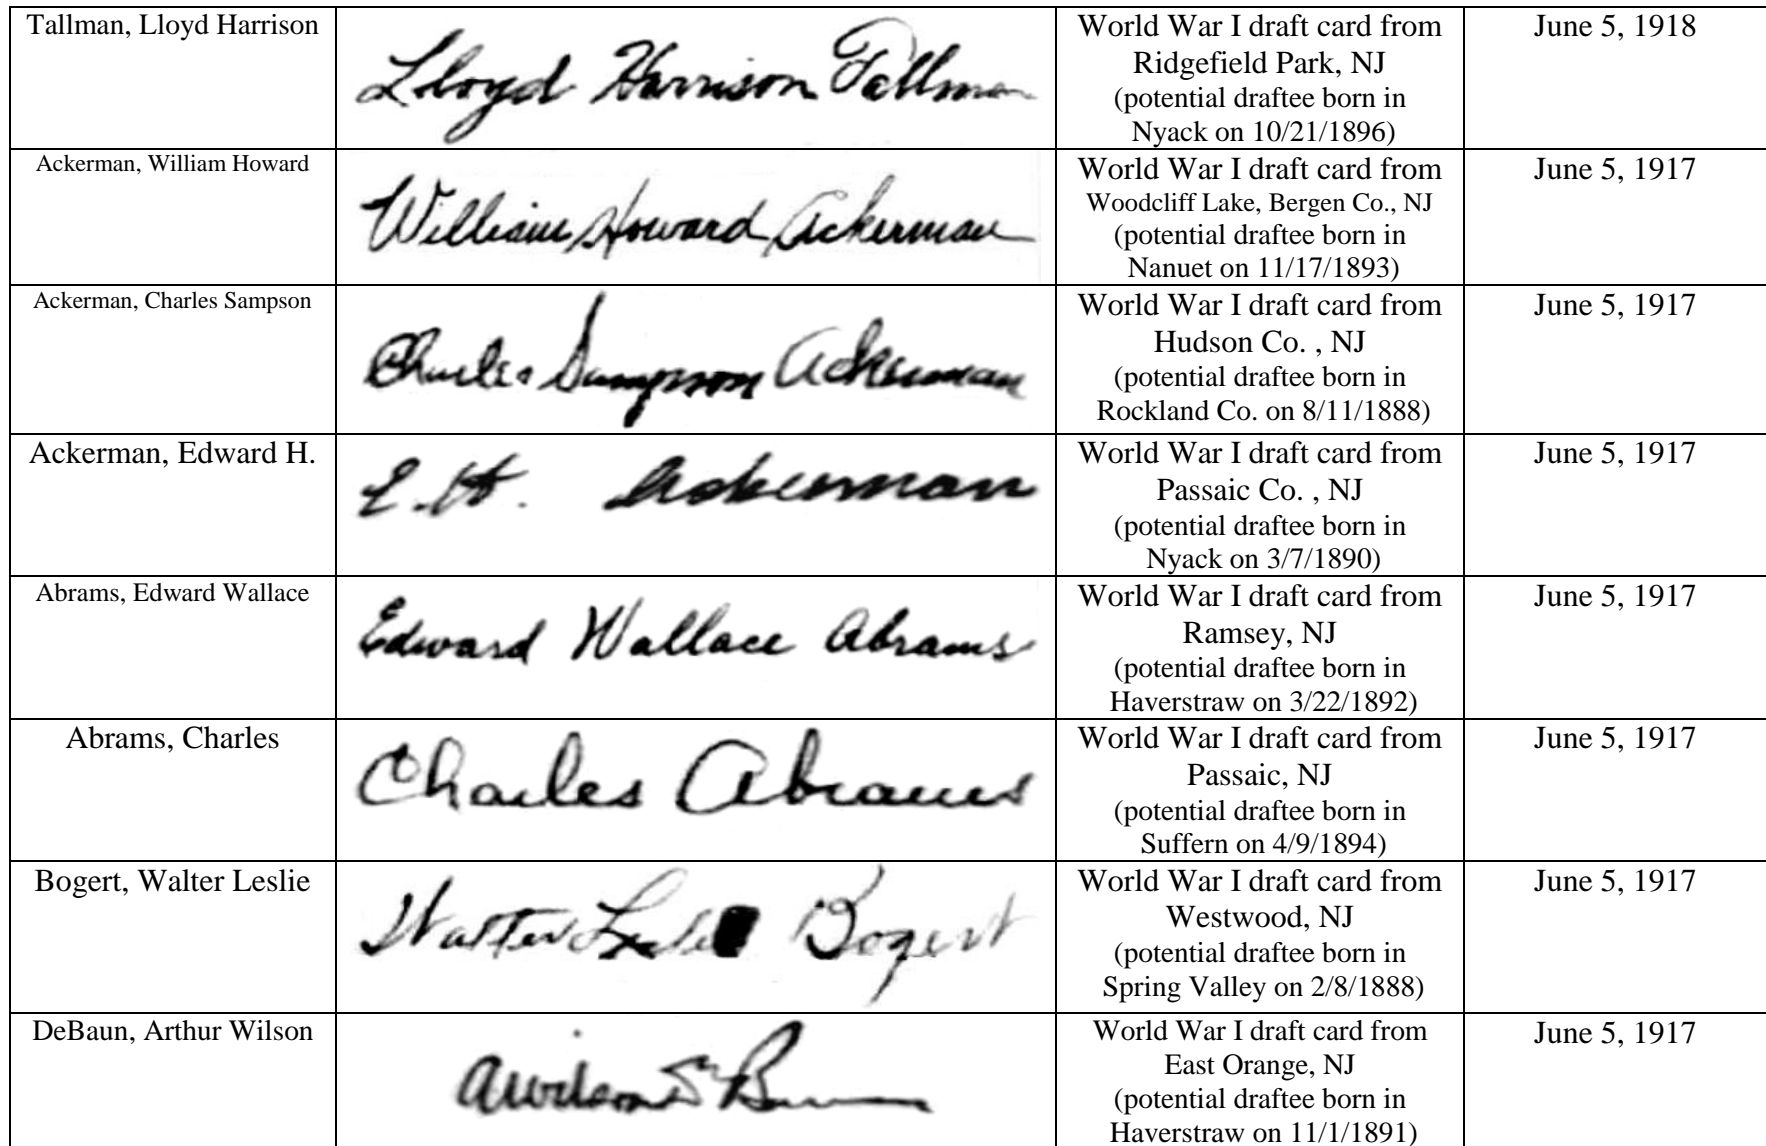 Tallman, Lloyd Harrison
Lloyd Harrison Tallman
World War I draft card from
Ridgefield Park, NJ
(potential draftee born in
Nyack on 10/21/1896)
June 5, 1918
Ackerman, William Howard
William Howard Ackerman
World War I draft card from
Woodcliff Lake, Bergen Co., NJ
(potential draftee born in
Nanuet on 11/17/1893)
June 5, 1917
Ackerman, Charles Sampson
Charles Sampson Ackerman
World War I draft card from
Hudson Co. , NJ
(potential draftee born in
Rockland Co. on 8/11/1888)
June 5, 1917
Ackerman, Edward H.
E. H. Ackerman
World War I draft card from
Passaic Co. , NJ
(potential draftee born in
Nyack on 3/7/1890)
June 5, 1917
Abrams, Edward Wallace
Edward Wallace Abrams
World War I draft card from
Ramsey, NJ
(potential draftee born in
Haverstraw on 3/22/1892)
June 5, 1917
Abrams, Charles
Charles Abrams
World War I draft card from
Passaic, NJ
(potential draftee born in
Suffern on 4/9/1894)
June 5, 1917
Bogert, Walter Leslie
Walter Leslie Bogert
World War I draft card from
Westwood, NJ
(potential draftee born in
Spring Valley on 2/8/1888)
June 5, 1917
DeBaun, Arthur Wilson
World War I draft card from
East Orange, NJ
(potential draftee born in
Haverstraw on 11/1/1891)
June 5, 1917